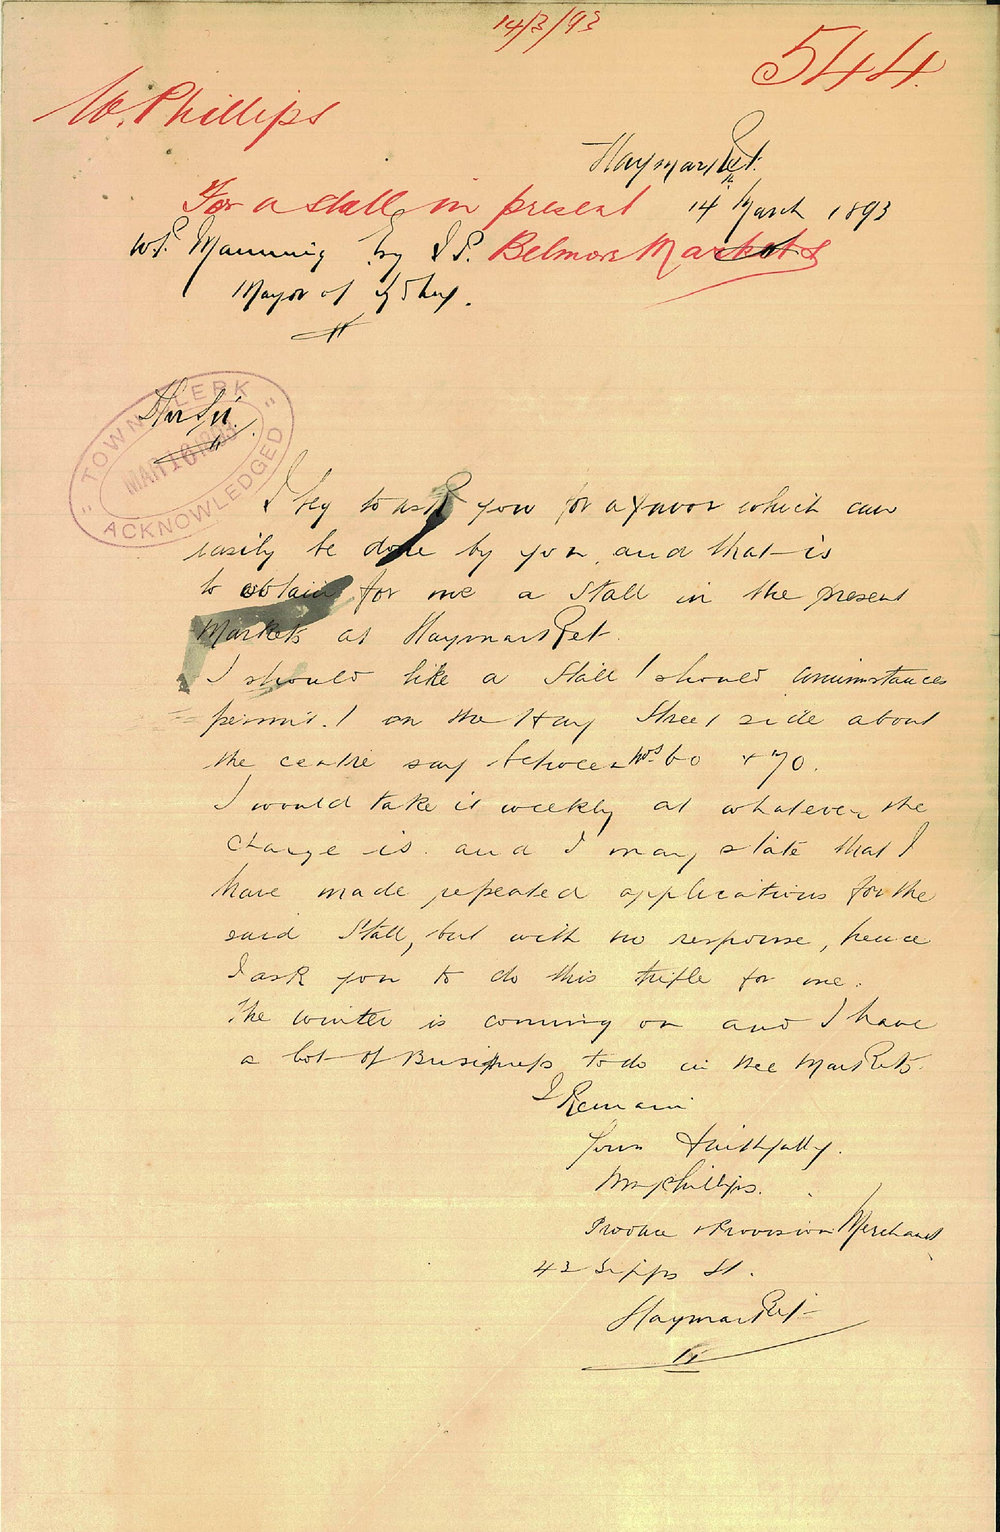 14/3/93
544
W. Phillips
Haymarket.
For a stall in present
14th March 1893
W.P. Manning Esq J.P.
Belmore Markets
Mayor of Sydney.
Dear Sir.
"TOWN CLERK"
MAR 16 1893
ACKNOWLEDGED
I beg to ask you for a favor which can
easily be done by you, and that is
to obtain for me a Stall in the present
Markets at Haymarket.
I should like a Stall (should circumstances
permit.) on the Hay Street side about
the centre say between Nos 60 & 70.
I would take it weekly at whatever the
charge is. and I may state that I
have made repeated applications for the
said Stall, but with no response, hence
I ask you to do this trifle for me.
The winter is coming on and I have
a lot of Business to do in the Markets.
I Remain
Yours Faithfully.
Wm Phillips.
Produce & Provision Merchant
42 St.
Haymarket